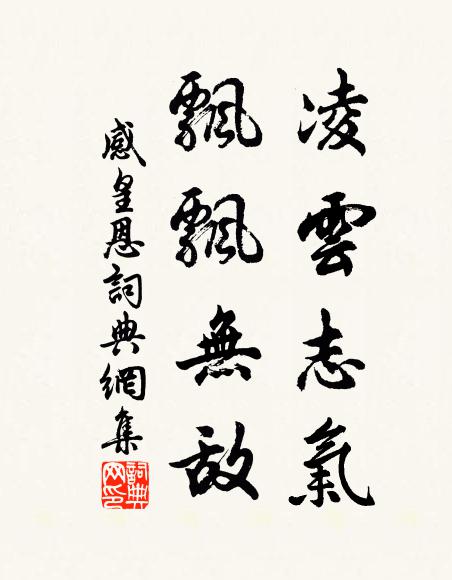 凌雲志氣
飄飄無敌
感皇恩詞典網集
詞典网印